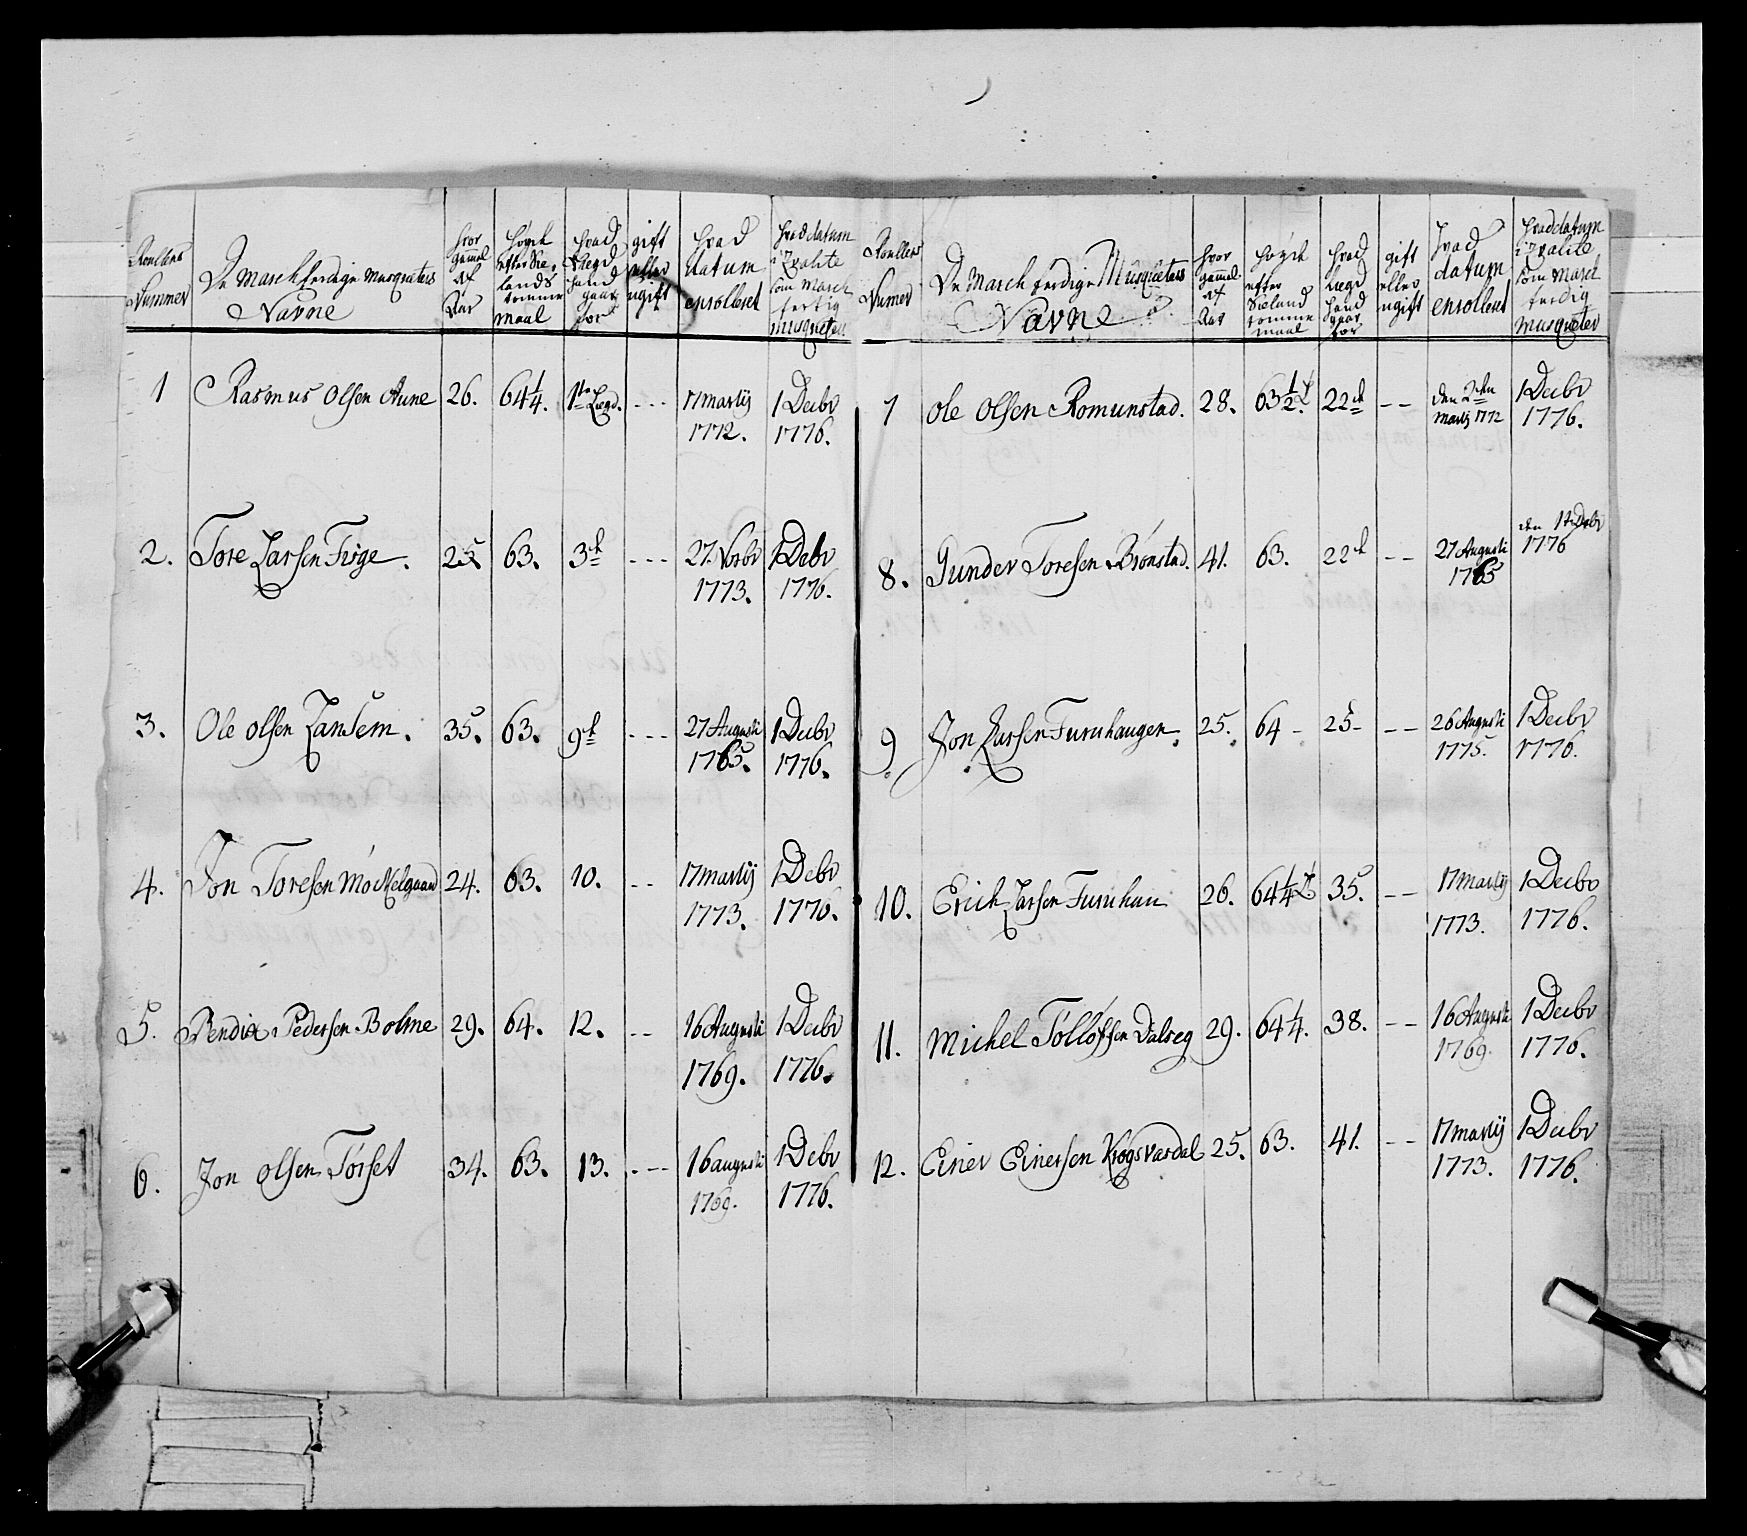 Roullens Nummer | De March ferdige Musqveters Navne | hvor gammel af Aar | høyde efter Sie- lands tomme maal | hvad Lægd hand gaar for | gift eller ugift | hvad datum enrolleret | hvad datum i Qvalite som March fertig musqveteer
1 | Rasmus Olsen Aune | 26. | 64 1/4. | 1te Lægd. | --- | 17 Martij 1772. | 1 Decbr 1776.
2. | Tore Larsen Fvge. | 25 | 63. | 3d | --- | 27. Novbr 1773. | 1 Debr 1776.
3. | Ole Olsen Lansem. | 35. | 63. | 9d | --- | 27 Augusti 1765. | 1 Decbr 1776.
4. | Jon Toresen Møckelgaard | 24. | 63. | 10. | -- | 17 Martij 1773. | 1 Debr 1776.
5. | Bendix Pedersen Bolme | 29. | 64. | 12. | -- | 16 Augusti 1769. | 1 Decbr 1776.
6. | Jon Olsen Tørset | 34. | 63. | 13. | --- | 16 augusti 1769. | 1 Debr 1776.
Roullens Numer | De March ferdige Musqveteers Navne | hvor gammel af Aar | høyde efter Sielands tomme maal | hvad Lægd hand gaar for | gift eller ugift | hvad datum enrolleret | hvad datum i Qvalite som March ferdig Musqveter
7 | Ole Olsen Romunstad. | 28. | 63 1/2 | 22d | -- | den 2den Martij 1772 | 1 Decbr 1776.
8. | Gunder Toresen Brønstad. | 41. | 63. | 22d | -- | 27 Augusti 1765 | den 1t Debr 1776
9. | Jon Larsen Furuhaugen. | 25. | 64 - | 25- | -- | 26 Augusti 1775. | 1 Decbr 1776.
10. | Erich Larsen Furuhau | 26. | 64 1/4 | 35. | -- | 17 Martij 1773. | 1 Decbr 1776.
11. | Michel Tølløfsen Dalseg | 29. | 64 1/4. | 38. | -- | 16 Augusti 1769. | 1 Decbr 1776.
12. | Einer Einersen Krogsvardal | 25. | 63. | 41. | -- | 17 Martij 1773. | 1 Decbr 1776.